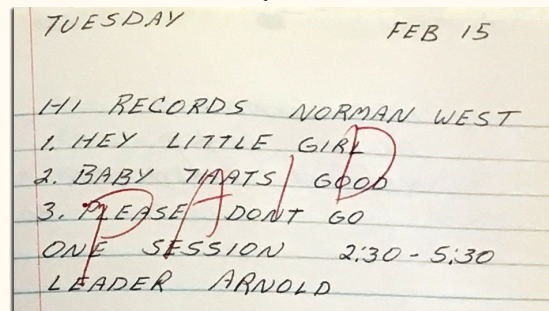 TUESDAY FEB 15
HI RECORDS NORMAN WEST
1. HEY LITTLE GIRL
2. BABY THATS GOOD
3. PLEASE DONT GO
ONE SESSION 2:30 - 5:30
LEADER ARNOLD
PAID